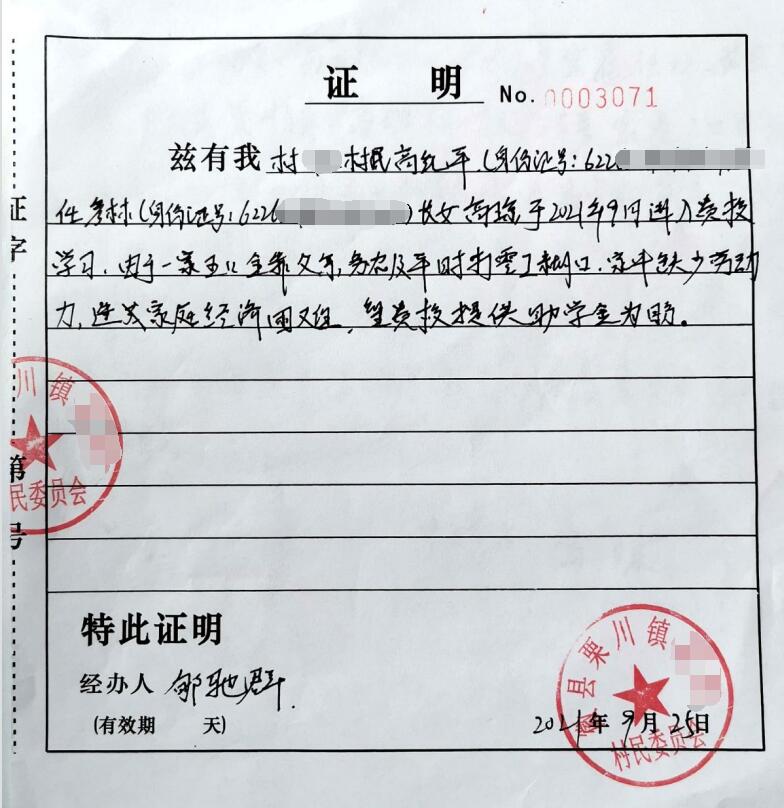 证 明 No.0003071
兹有我 村 村民高 平(身份证号:622
任 林(身份证号:6226 )长女高 于2021年9月进入贵校
学习,由于一家五口全靠父亲,务农及平时打零工糊口,家中缺少劳动
力,造成家庭经济困难,望贵校提供助学金为盼。
证字
第
号
川镇
民委员会
特此证明
经办人 邹驰群
(有效期 天)
县栗川镇
村民委员会
2021年9月25日